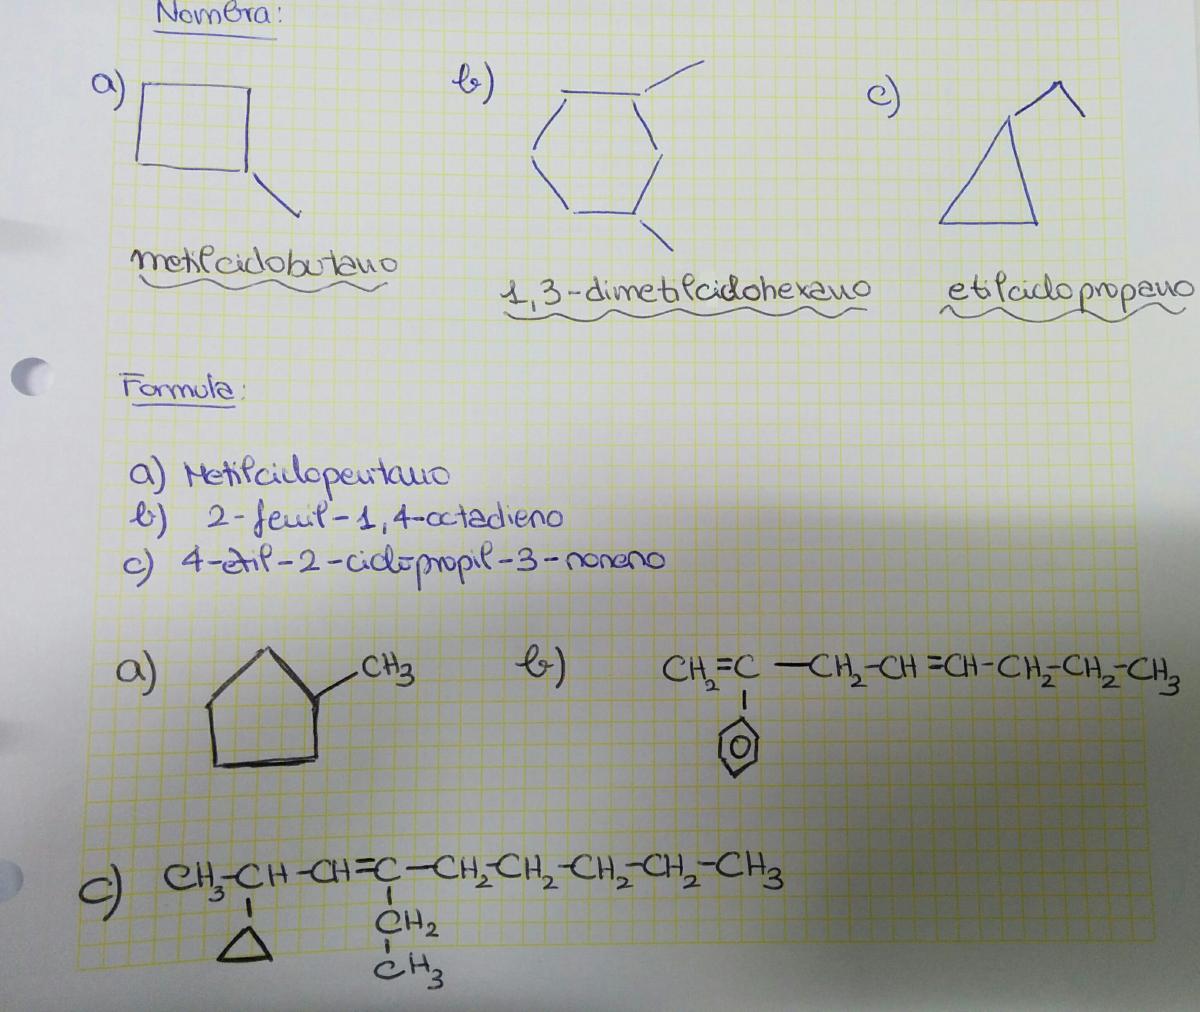 Nombra:
a)
b)
c)
metilciclobutano
1,3-dimetilciclohexano
etilciclopropano
Formula:
a) Metilciclopentano
b) 2-fenil-1,4-octadieno
c) 4-etil-2-ciclopropil-3-noneno
a)
CH₃
b)
CH₂=C—CH₂-CH=CH-CH₂-CH₂-CH₃
c)
CH₃-CH-CH=C-CH₂-CH₂-CH₂-CH₂-CH₃
CH₂
CH₃